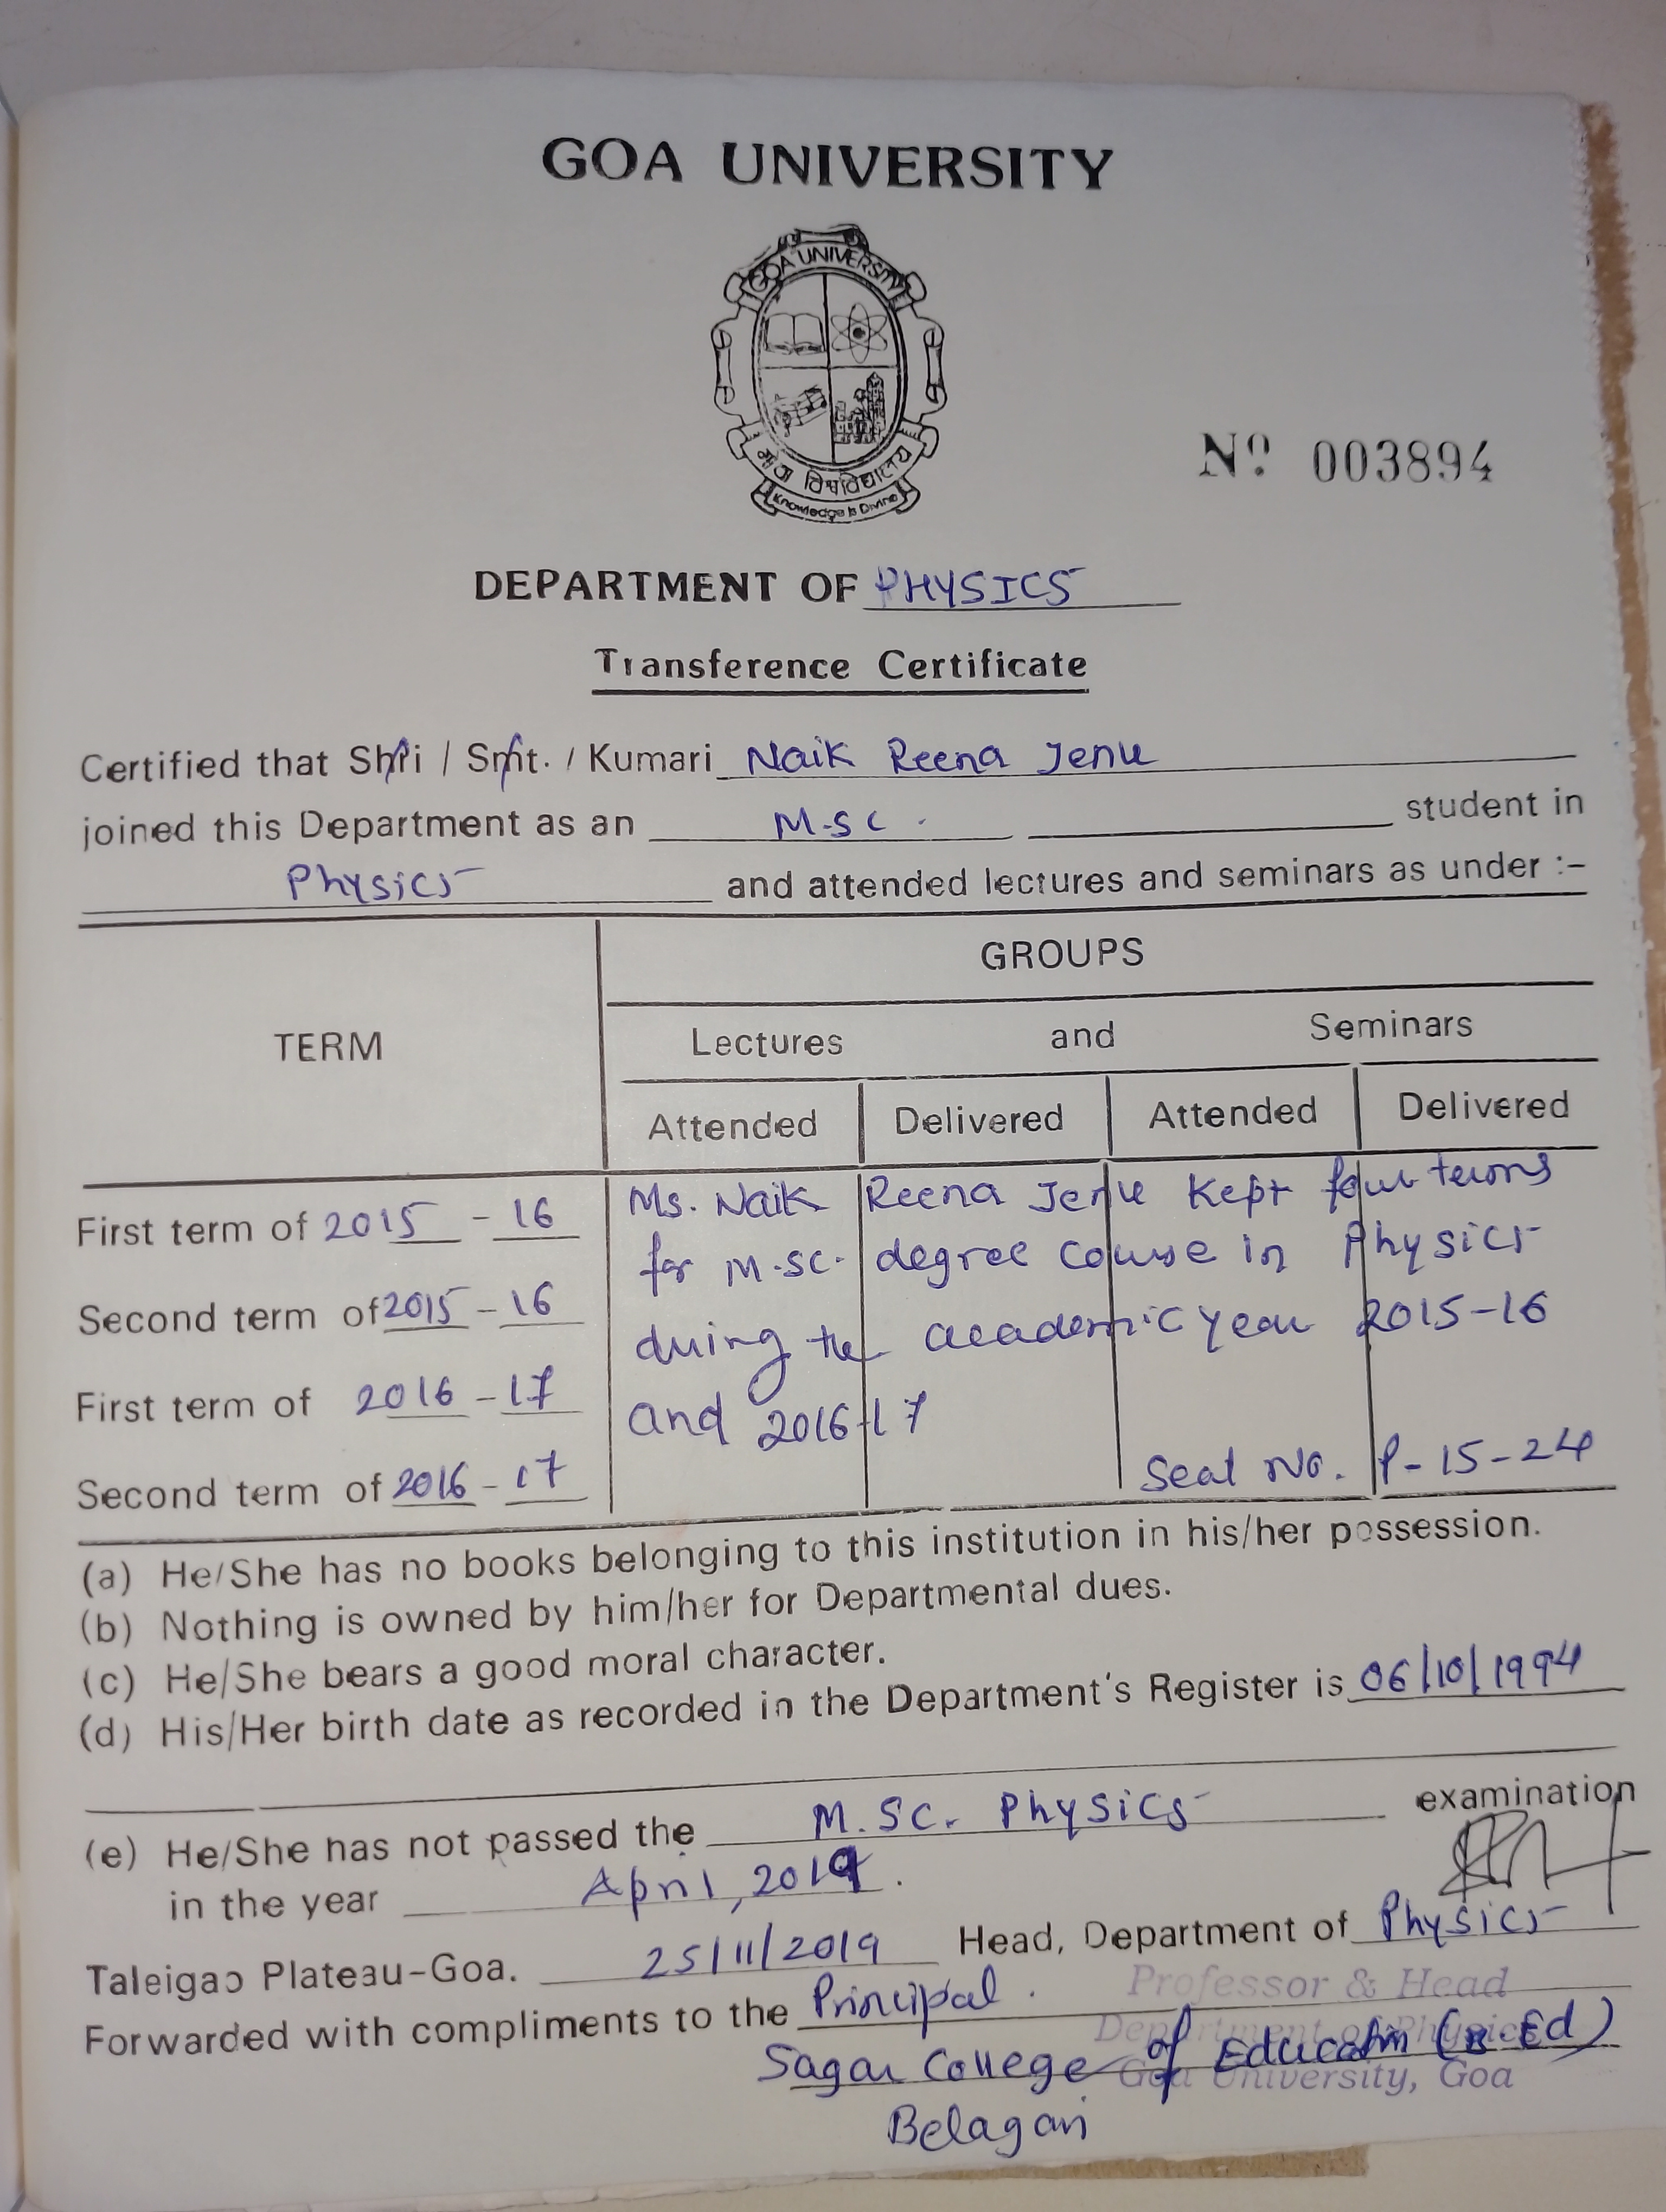 GOA UNIVERSITY
GOA UNIVERSITY
गोंय विश्वविद्यालय
Knowledge is Divine
Nº 003894
DEPARTMENT OF PHYSICS
Transference Certificate
Certified that Shri / Smt. / Kumari Naik Reena Jenu
joined this Department as an M.sc. student in
Physics and attended lectures and seminars as under :-
GROUPS
TERM
Lectures and Seminars
Attended Delivered Attended Delivered
First term of 2015 - 16
Second term of 2015 - 16
First term of 2016 - 17
Second term of 2016 - 17
Ms. Naik Reena Jenu Kept four terms
for M.sc. degree course in Physics
during the academic year 2015-16
and 2016-17
Seat No. P-15-24
(a) He/She has no books belonging to this institution in his/her possession.
(b) Nothing is owned by him/her for Departmental dues.
(c) He/She bears a good moral character.
(d) His/Her birth date as recorded in the Department's Register is 06/10/1994
(e) He/She has not passed the M.SC. Physics examination
in the year April, 2019.
Taleigao Plateau-Goa. 25/11/2019 Head, Department of Physics
Professor & Head
Forwarded with compliments to the Principal.
Department of Physics
Sagar College of Education (B.Ed)
Goa University, Goa
Belagavi